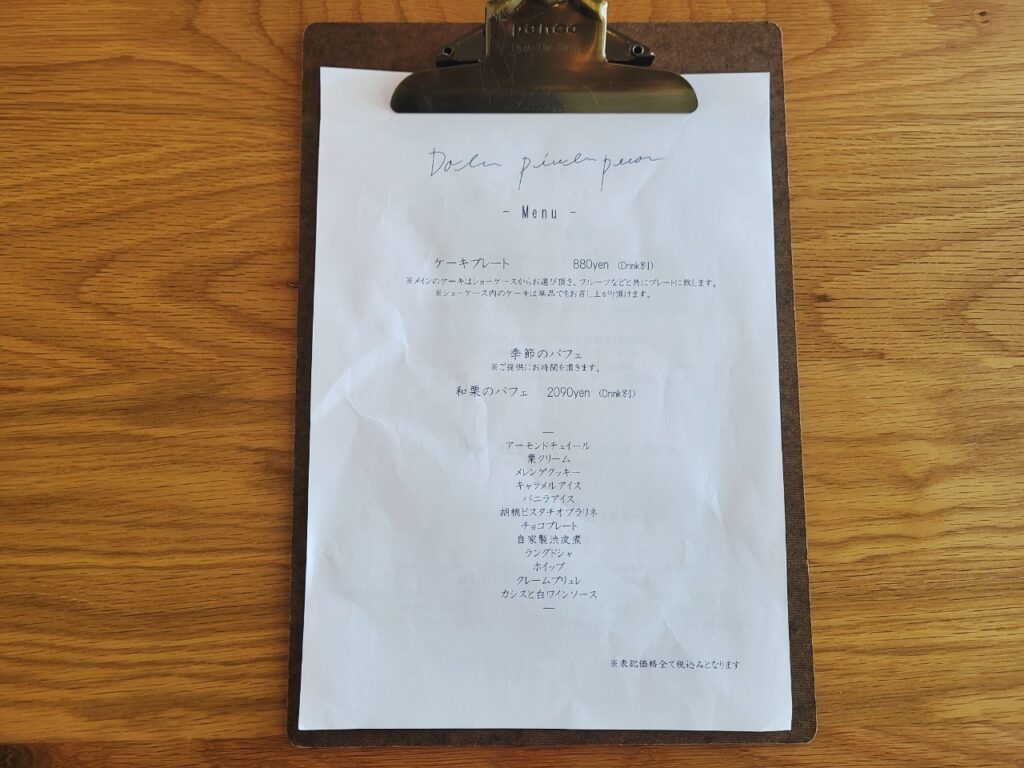 penco
- Menu -
ケーキプレート 880yen (Drink別)
※メインのケーキはショーケースからお選び頂き、フルーツなどと共にプレートに致します。
※ショーケース内のケーキは単品でもお召し上がり頂けます。
季節のパフェ
※ご提供にお時間を頂きます。
和栗のパフェ 2090yen (Drink別)
アーモンドチュイール
栗クリーム
メレンゲクッキー
キャラメルアイス
バニラアイス
胡桃ピスタチオプラリネ
チョコプレート
自家製渋皮煮
ラングドシャ
ホイップ
クレームブリュレ
カシスと白ワインソース
※表記価格全て税込みとなります